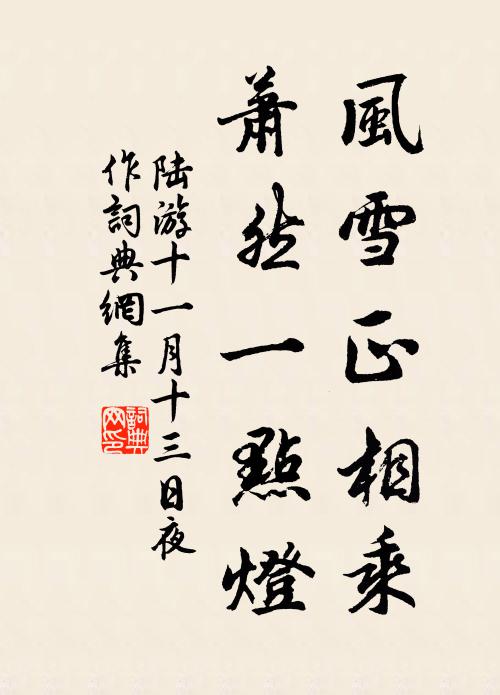 風雪正相乘
蕭然一點燈
陸游十一月十三日夜
作詞典網集
詞典
网印